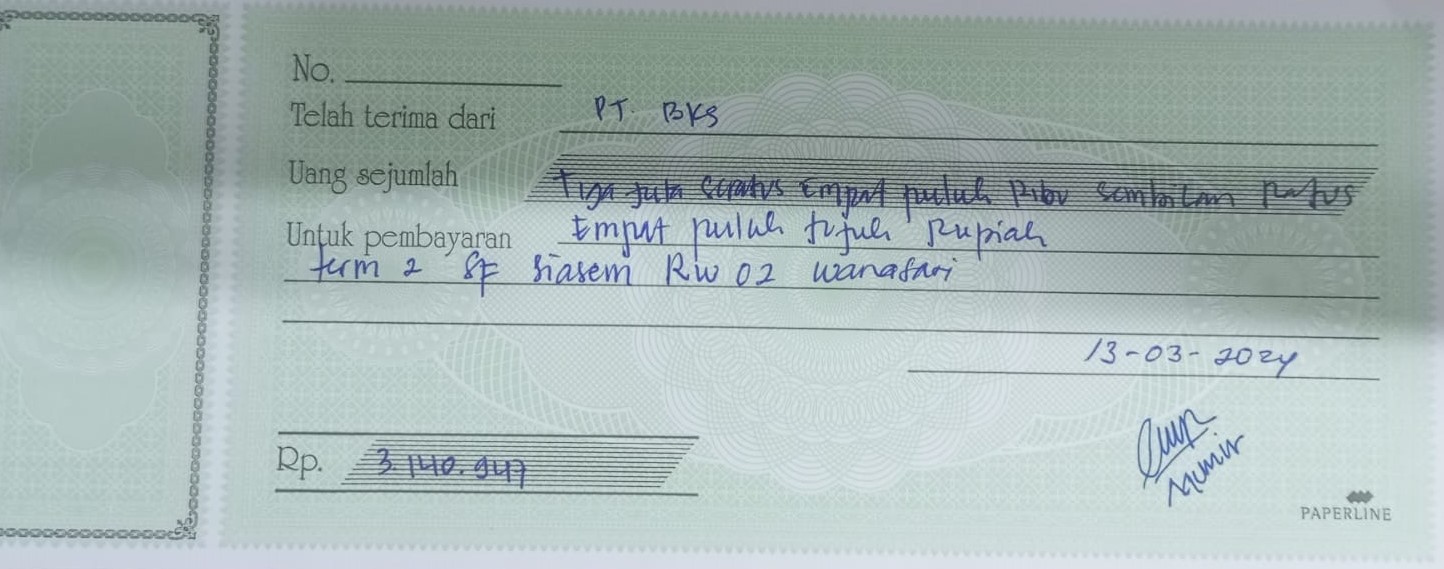 No.
Telah terima dari PT. BKS
Uang sejumlah Tiga Juta Seratus Empat puluh Ribu sembilan Ratus
Untuk pembayaran Empat puluh tujuh Rupiah
term 2 SF Siasem RW 02 wanasari
13-03-2024
Rp. 3.140.947
Munir
PAPERLINE